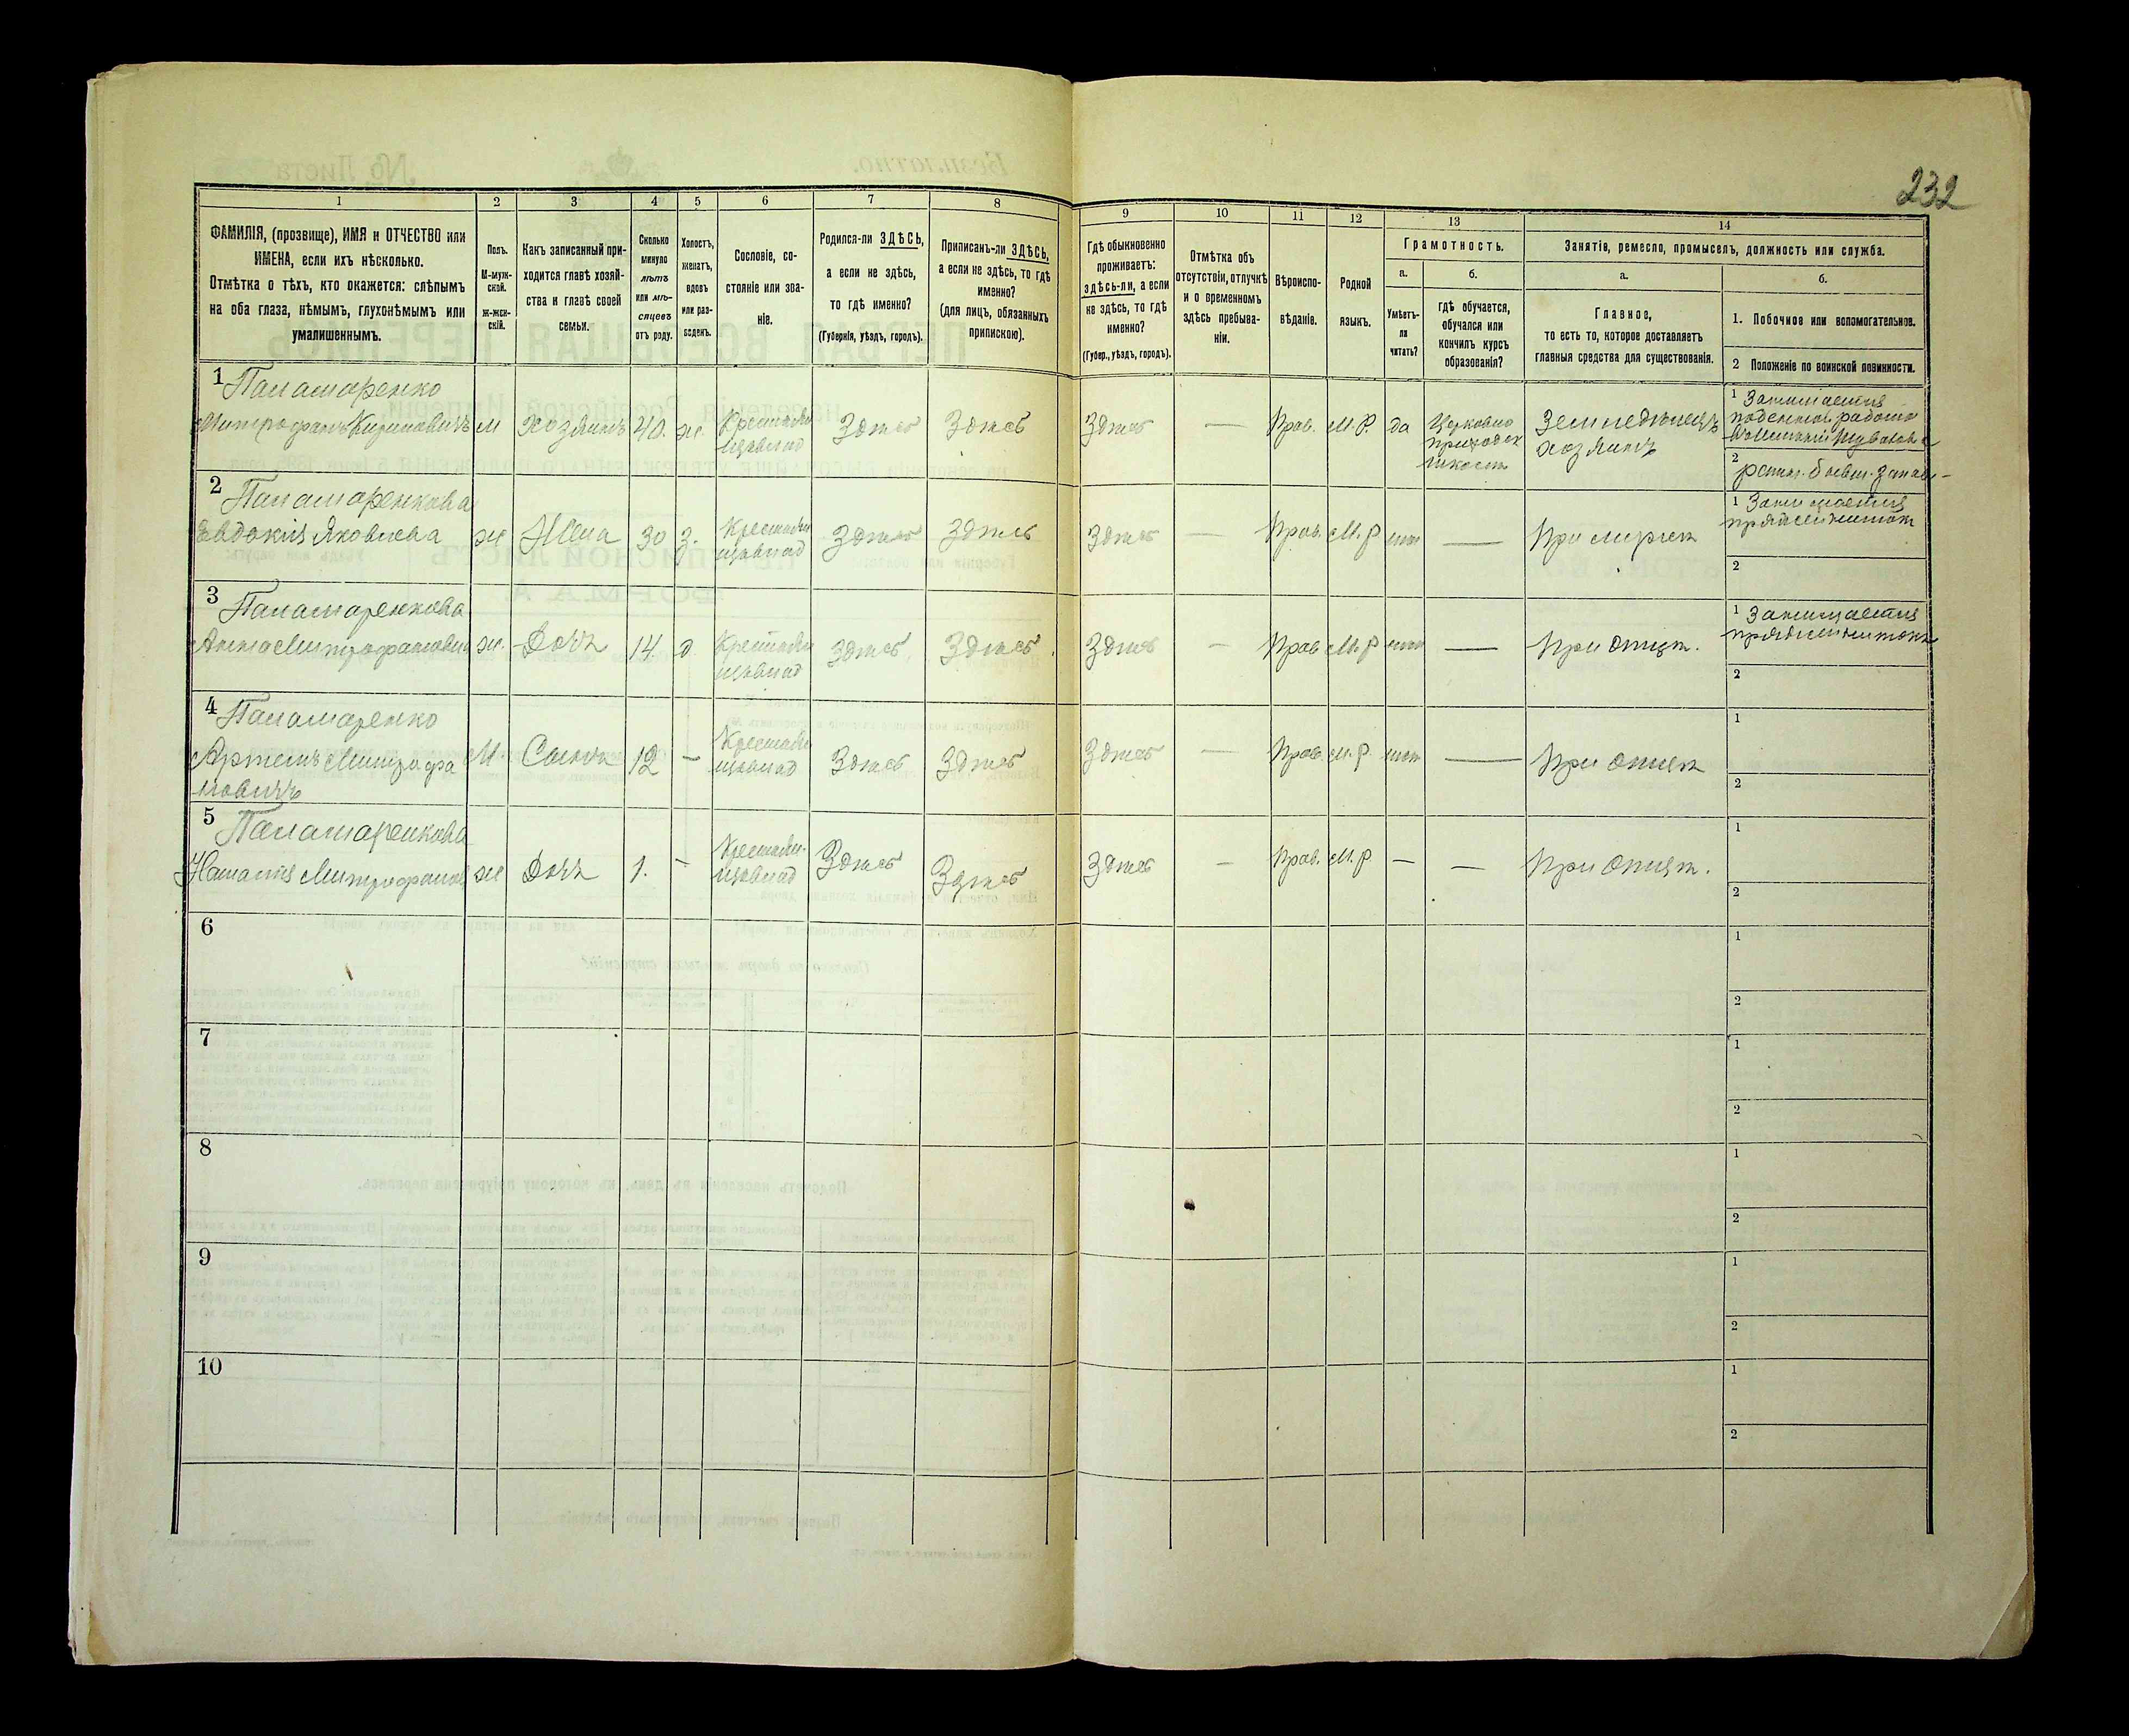 232
1 2 3 4 5 6 7 8 9 10 11 12 13 14
ФАМИЛІЯ, (прозвище), ИМЯ и ОТЧЕСТВО или
ИМЕНА, если ихъ нѣсколько.
Отмѣтка о тѣхъ, кто окажется: слѣпымъ
на оба глаза, нѣмымъ, глухонѣмымъ или
умалишеннымъ.
Полъ.
М-муж-
ской.
ж-жен-
скій.
Какъ записанный при-
ходится главѣ хозяй-
ства и главѣ своей
семьи.
Сколько
минуло
лѣтъ
или мѣ-
сяцевъ
отъ роду.
Холостъ,
женатъ,
вдовъ
или раз-
веденъ.
Сословіе, со-
стояніе или зва-
ніе.
Родился-ли ЗДѢСЬ,
а если не здѣсь,
то гдѣ именно?
(Губернія, уѣздъ, городъ).
Приписанъ-ли ЗДѢСЬ,
а если не здѣсь, то гдѣ
именно?
(для лицъ, обязанныхъ
припискою).
Гдѣ обыкновенно
проживаетъ:
здѣсь-ли, а если
не здѣсь, то гдѣ
именно?
(Губер., уѣздъ, городъ).
Отмѣтка объ
отсутствіи, отлучкѣ
и о временномъ
здѣсь пребыва-
ніи.
Вѣроиспо-
вѣданіе.
Родной
языкъ.
Грамотность.
а.
Умѣетъ-
ли
читать?
б.
гдѣ обучается,
обучался или
кончилъ курсъ
образованія?
Занятіе, ремесло, промыселъ, должность или служба.
а.
Главное,
то есть то, которое доставляетъ
главныя средства для существованія.
б.
1. Побочное или вспомогательное.
2 Положеніе по воинской повинности.
1 Панамаренко
Митрофанъ Кириловичъ м Хозяинъ 40. ж. Здѣсь Здѣсь Здѣсь — Прав. М.Р. да
Церковно
Земледѣлецъ
хозяинъ
1 Занимается
2
2 Панамаренкова
Евдокія Яковлева ж Жена 30 з. Здѣсь Здѣсь Здѣсь — Прав. М.Р нѣт — При мужѣ
1 Занимается
2
3 Панамаренкова
Анна Митрофановна ж. Дочь 14 д Здѣсь Здѣсь Здѣсь — Прав М.Р нѣт — При отцѣ.
1 Занимается
2
4 Панамаренко
Артемъ Митрофа
новичъ
М. Сынъ 12 — Здѣсь Здѣсь Здѣсь — Прав. М.Р. нѣт — При отцѣ
1
2
5 Панамаренкова
Митрофанов ж Дочь 1. — Здѣсь Здѣсь Здѣсь — Прав. М.Р — — При отцѣ.
1
2
6
1
2
7
1
2
8
1
2
9
1
2
10
1
2